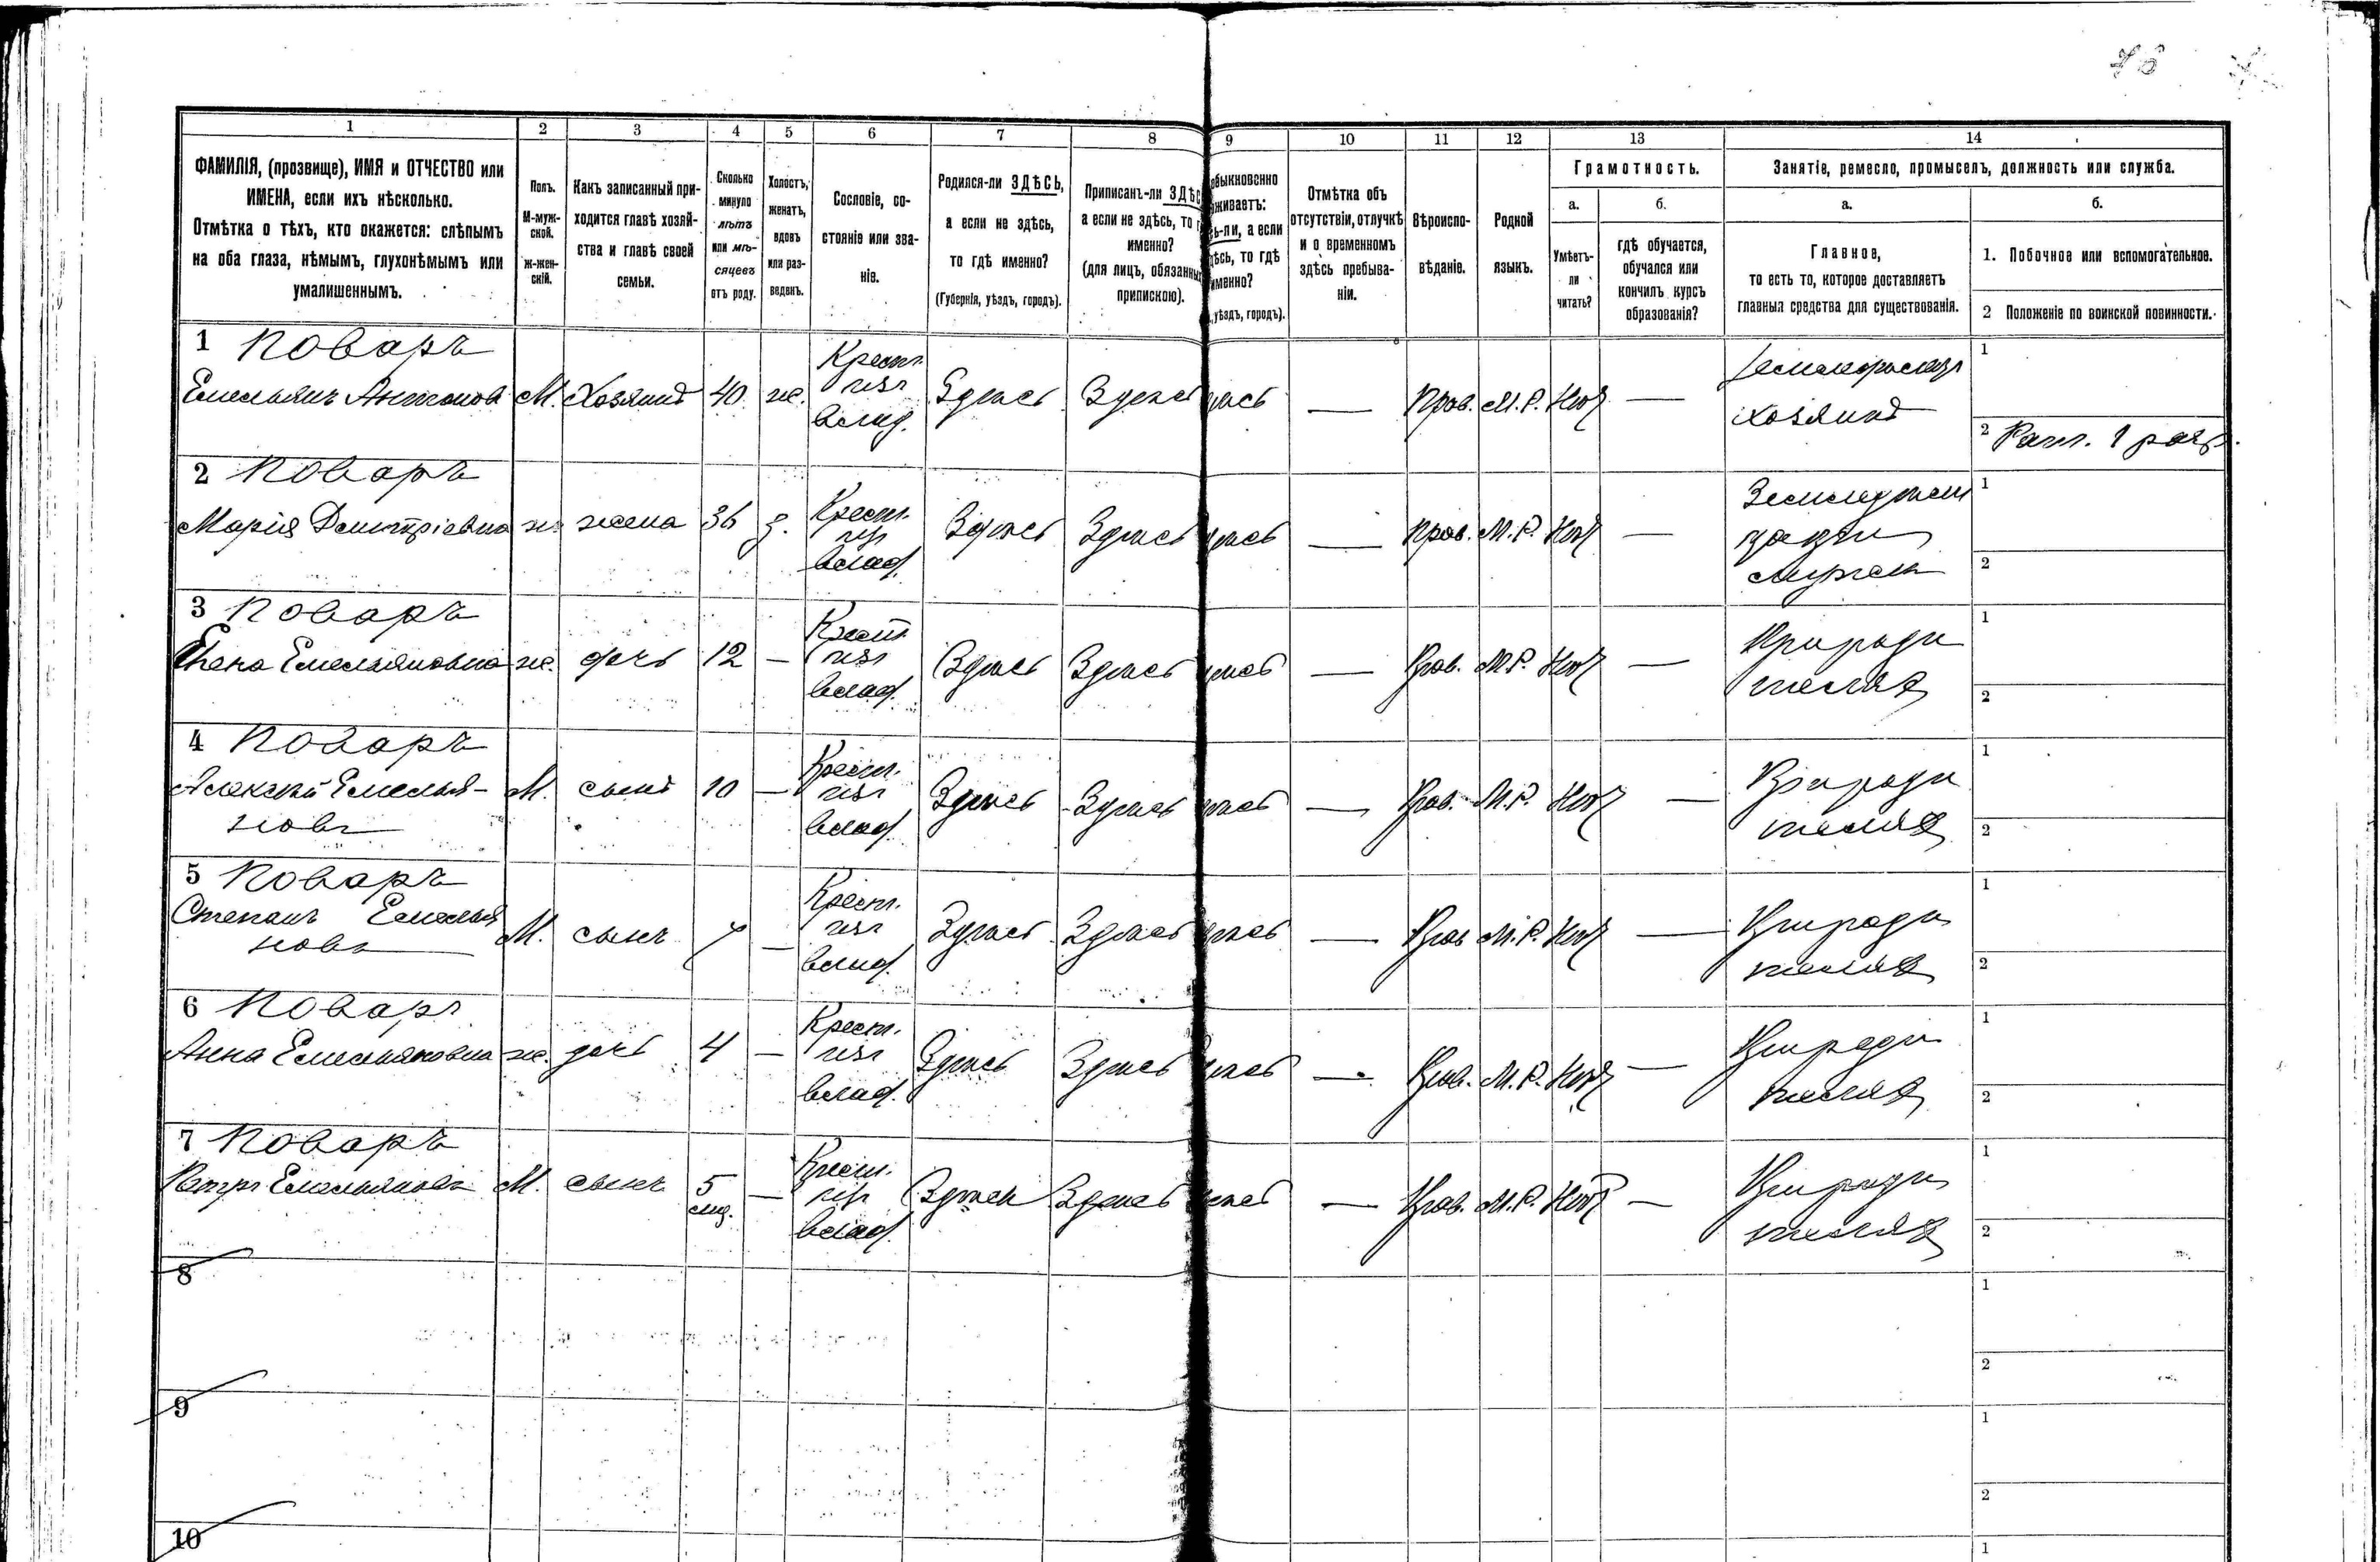 1 2 3 4 5 6 7 8 9 10 11 12 13 14
ФАМИЛІЯ, (прозвище), ИМЯ и ОТЧЕСТВО или
ИМЕНА, если ихъ нѣсколько.
Отмѣтка о тѣхъ, кто окажется: слѣпымъ
на оба глаза, нѣмымъ, глухонѣмымъ или
умалишеннымъ.
Полъ.
М-муж-
ской.
Ж-жен-
скій.
Какъ записанный при-
ходится главѣ хозяй-
ства и главѣ своей
семьи.
Сколько
минуло
лѣтъ
или мѣ-
сяцевъ
отъ роду.
Холостъ,
женатъ,
вдовъ
или раз-
веденъ.
Сословіе, со-
стояніе или зва-
ніе.
Родился-ли ЗДѢСЬ,
а если не здѣсь,
то гдѣ именно?
(Губернія, уѣздъ, городъ).
Приписанъ-ли ЗДѢС
а если не здѣсь, то г
именно?
(для лицъ, обязанных
припискою).
обыкновенно
живаетъ:
ь-ли, а если
дѣсь, то гдѣ
именно?
уѣздъ, городъ).
Отмѣтка объ
отсутствіи, отлучкѣ
и о временномъ
здѣсь пребыва-
ніи.
Вѣроиспо-
вѣданіе.
Родной
языкъ.
Грамотность.
а.
Умѣетъ-
ли
читать?
б.
гдѣ обучается,
обучался или
кончилъ курсъ
образованія?
Занятіе, ремесло, промыселъ, должность или служба.
а.
Главное,
то есть то, которое доставляетъ
главныя средства для существованія.
б.
1. Побочное или вспомогательное.
2 Положеніе по воинской повинности.
1 Поваръ
Емельянъ Антоновъ М. Хозяинъ 40 ж.
Крест.
изъ
влад.
Здѣсь Здѣсь ѣсь — Прав. М. Р. Нѣт —
хозяинъ
1
2 Рат. 1 разр.
2 Поваръ
Марія Дмитріевна ж. жена 36 з.
Крест.
изъ
влад.
Здѣсь Здѣсь ѣсь — Прав. М. Р. Нѣт —
1
2
3 Поваръ
Емельяновна ж. дочь 12 —
Крест.
изъ
влад.
Здѣсь Здѣсь ѣсь — Прав. М. Р. Нѣт —
При роди
теляхъ
1
2
4 Поваръ
Алексѣй Емелья-
новъ
М. сынъ 10 —
Крест.
изъ
влад.
Здѣсь Здѣсь ѣсь — Прав. М. Р. Нѣт —
При роди
теляхъ
1
2
5 Поваръ
Степанъ Емелья
новъ
М. сынъ 7 —
Крест.
изъ
влад.
Здѣсь Здѣсь ѣсь — Прав. М. Р. Нѣт —
При роди
теляхъ
1
2
6 Поваръ
Анна Емельяновна ж. дочь 4 —
Крест.
изъ
влад.
Здѣсь Здѣсь ѣсь — Прав. М. Р. Нѣт —
При роди
теляхъ
1
2
7 Поваръ
Петръ Емельяновъ М. сынъ 5 —
мѣ.
Крест.
изъ
влад.
Здѣсь Здѣсь ѣсь — Прав. М. Р. Нѣт —
При роди
теляхъ
1
2
8
1
2
9
1
2
10
1